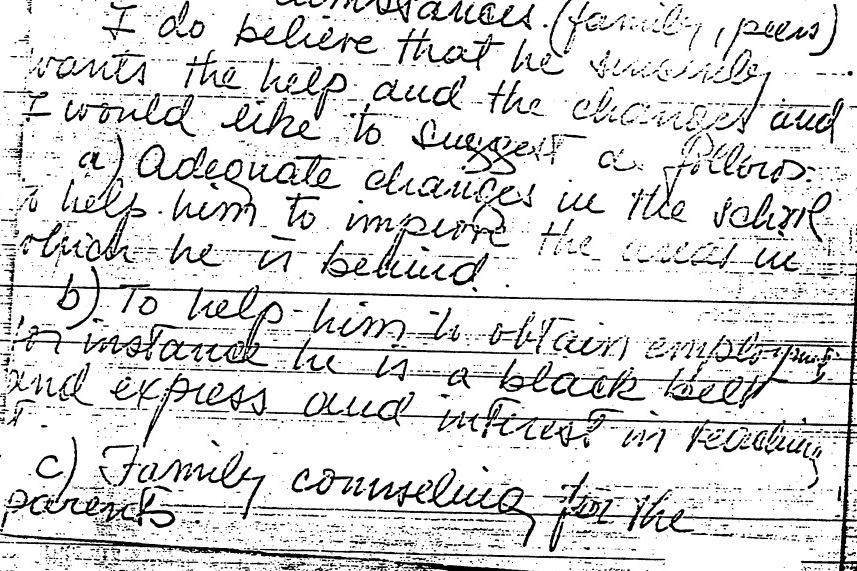 (family, peers)
I do believe that he sincerely
wants the help and the changes and
I would like to suggest as follows:
a) Adequate changes in the school
to help him to improve the areas in
which he is behind.
b) To help him to obtain employment,
for instance he is a black belt
and express and interest in teaching
it.
c) Family counseling for the
parents.